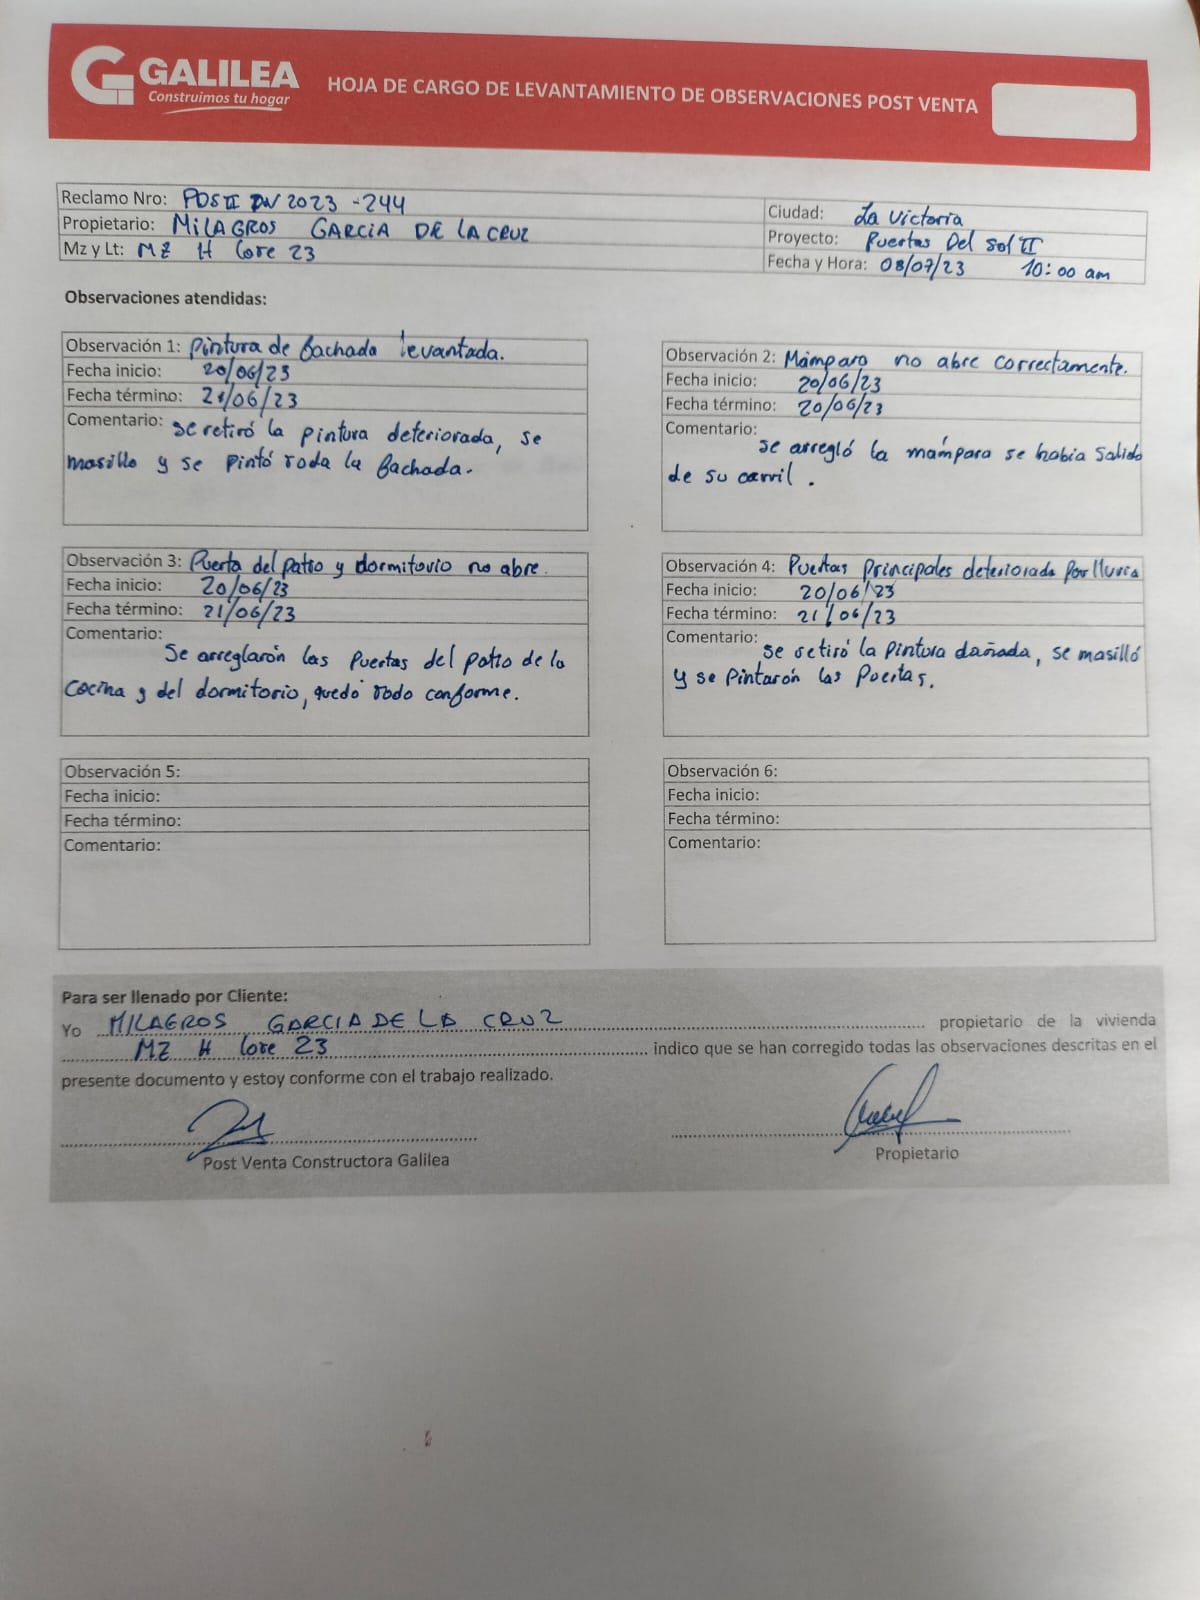 GALILEA
Construimos tu hogar
HOJA DE CARGO DE LEVANTAMIENTO DE OBSERVACIONES POST VENTA
Reclamo Nro: PDSII PV 2023 -244
Propietario: MILAGROS GARCIA DE LA CRUZ
Mz y Lt: MZ H Lote 23
Ciudad: La Victoria
Proyecto: Puertas Del Sol II
Fecha y Hora: 08/07/23 10:00 am
Observaciones atendidas:
Observación 1: Pintura de fachada levantada.
Fecha inicio: 20/06/23
Fecha término: 21/06/23
Comentario: se retiró la pintura deteriorada, se
masillo y se pintó toda la fachada.
Observación 2: Mámpara no abre correctamente.
Fecha inicio: 20/06/23
Fecha término: 20/06/23
Comentario:
se arregló la mámpara se habia salido
de su carril .
Observación 3: Puerta del patio y dormitorio no abre.
Fecha inicio: 20/06/23
Fecha término: 21/06/23
Comentario:
Se arreglarón las puertas del patio de la
cocina y del dormitorio, quedó todo conforme.
Observación 4: Puertas principales deteriorada por lluvia
Fecha inicio: 20/06/23
Fecha término: 21/06/23
Comentario: se retiró la pintura dañada, se masilló
y se pintarón las puertas.
Observación 5:
Fecha inicio:
Fecha término:
Comentario:
Observación 6:
Fecha inicio:
Fecha término:
Comentario:
Para ser llenado por Cliente:
Yo MILAGROS GARCIA DE LA CRUZ propietario de la vivienda
MZ H Lote 23 indico que se han corregido todas las observaciones descritas en el
presente documento y estoy conforme con el trabajo realizado.
Post Venta Constructora Galilea
Propietario